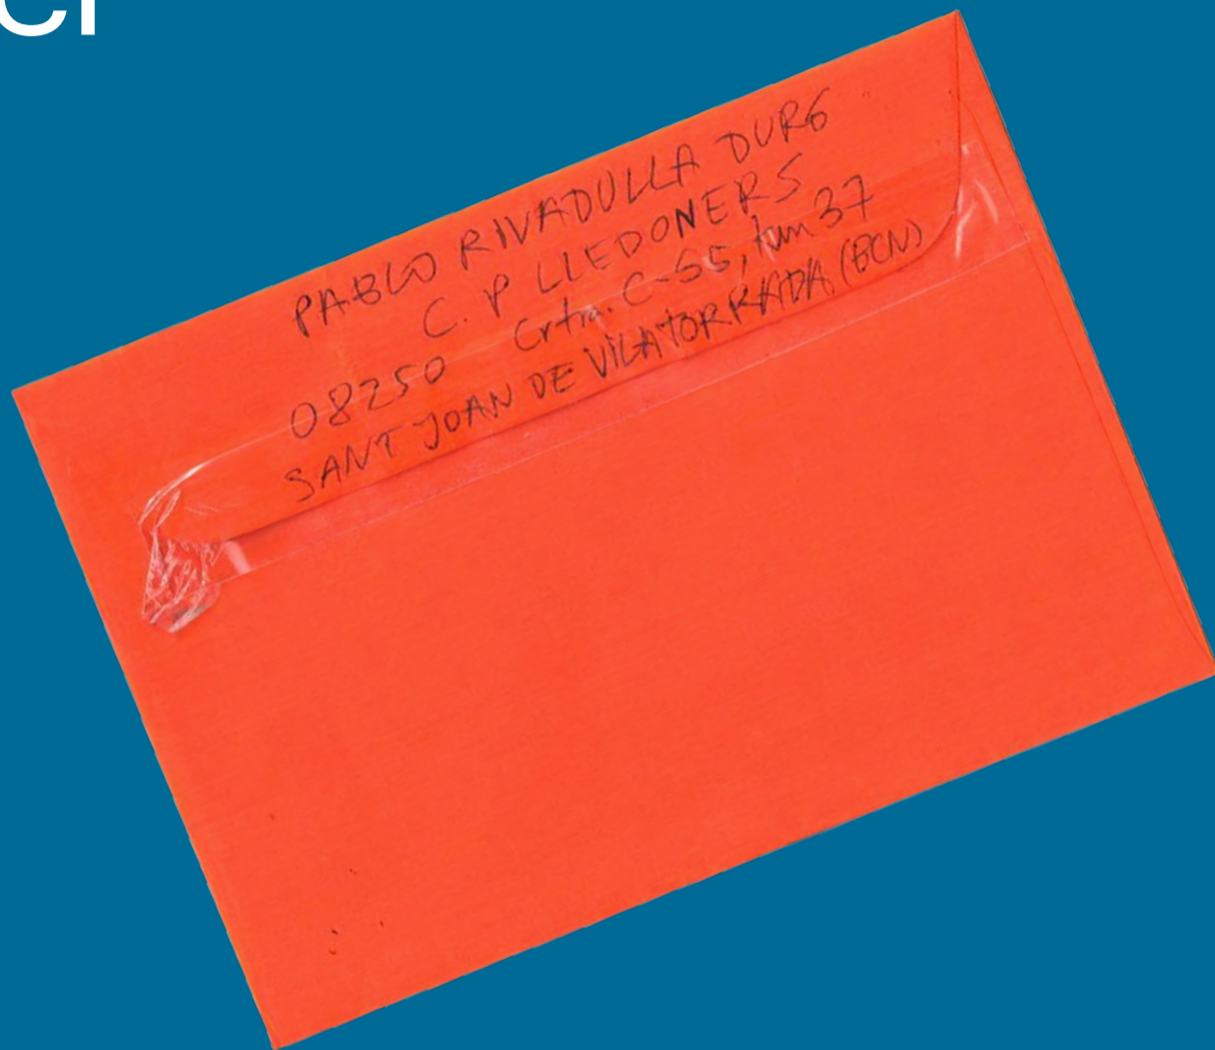 PABLO RIVADULLA DURÓ
C. P LLEDONERS
Crtra. C-55, km 37
08250
SANT JOAN DE VILATORRADA (BCN)